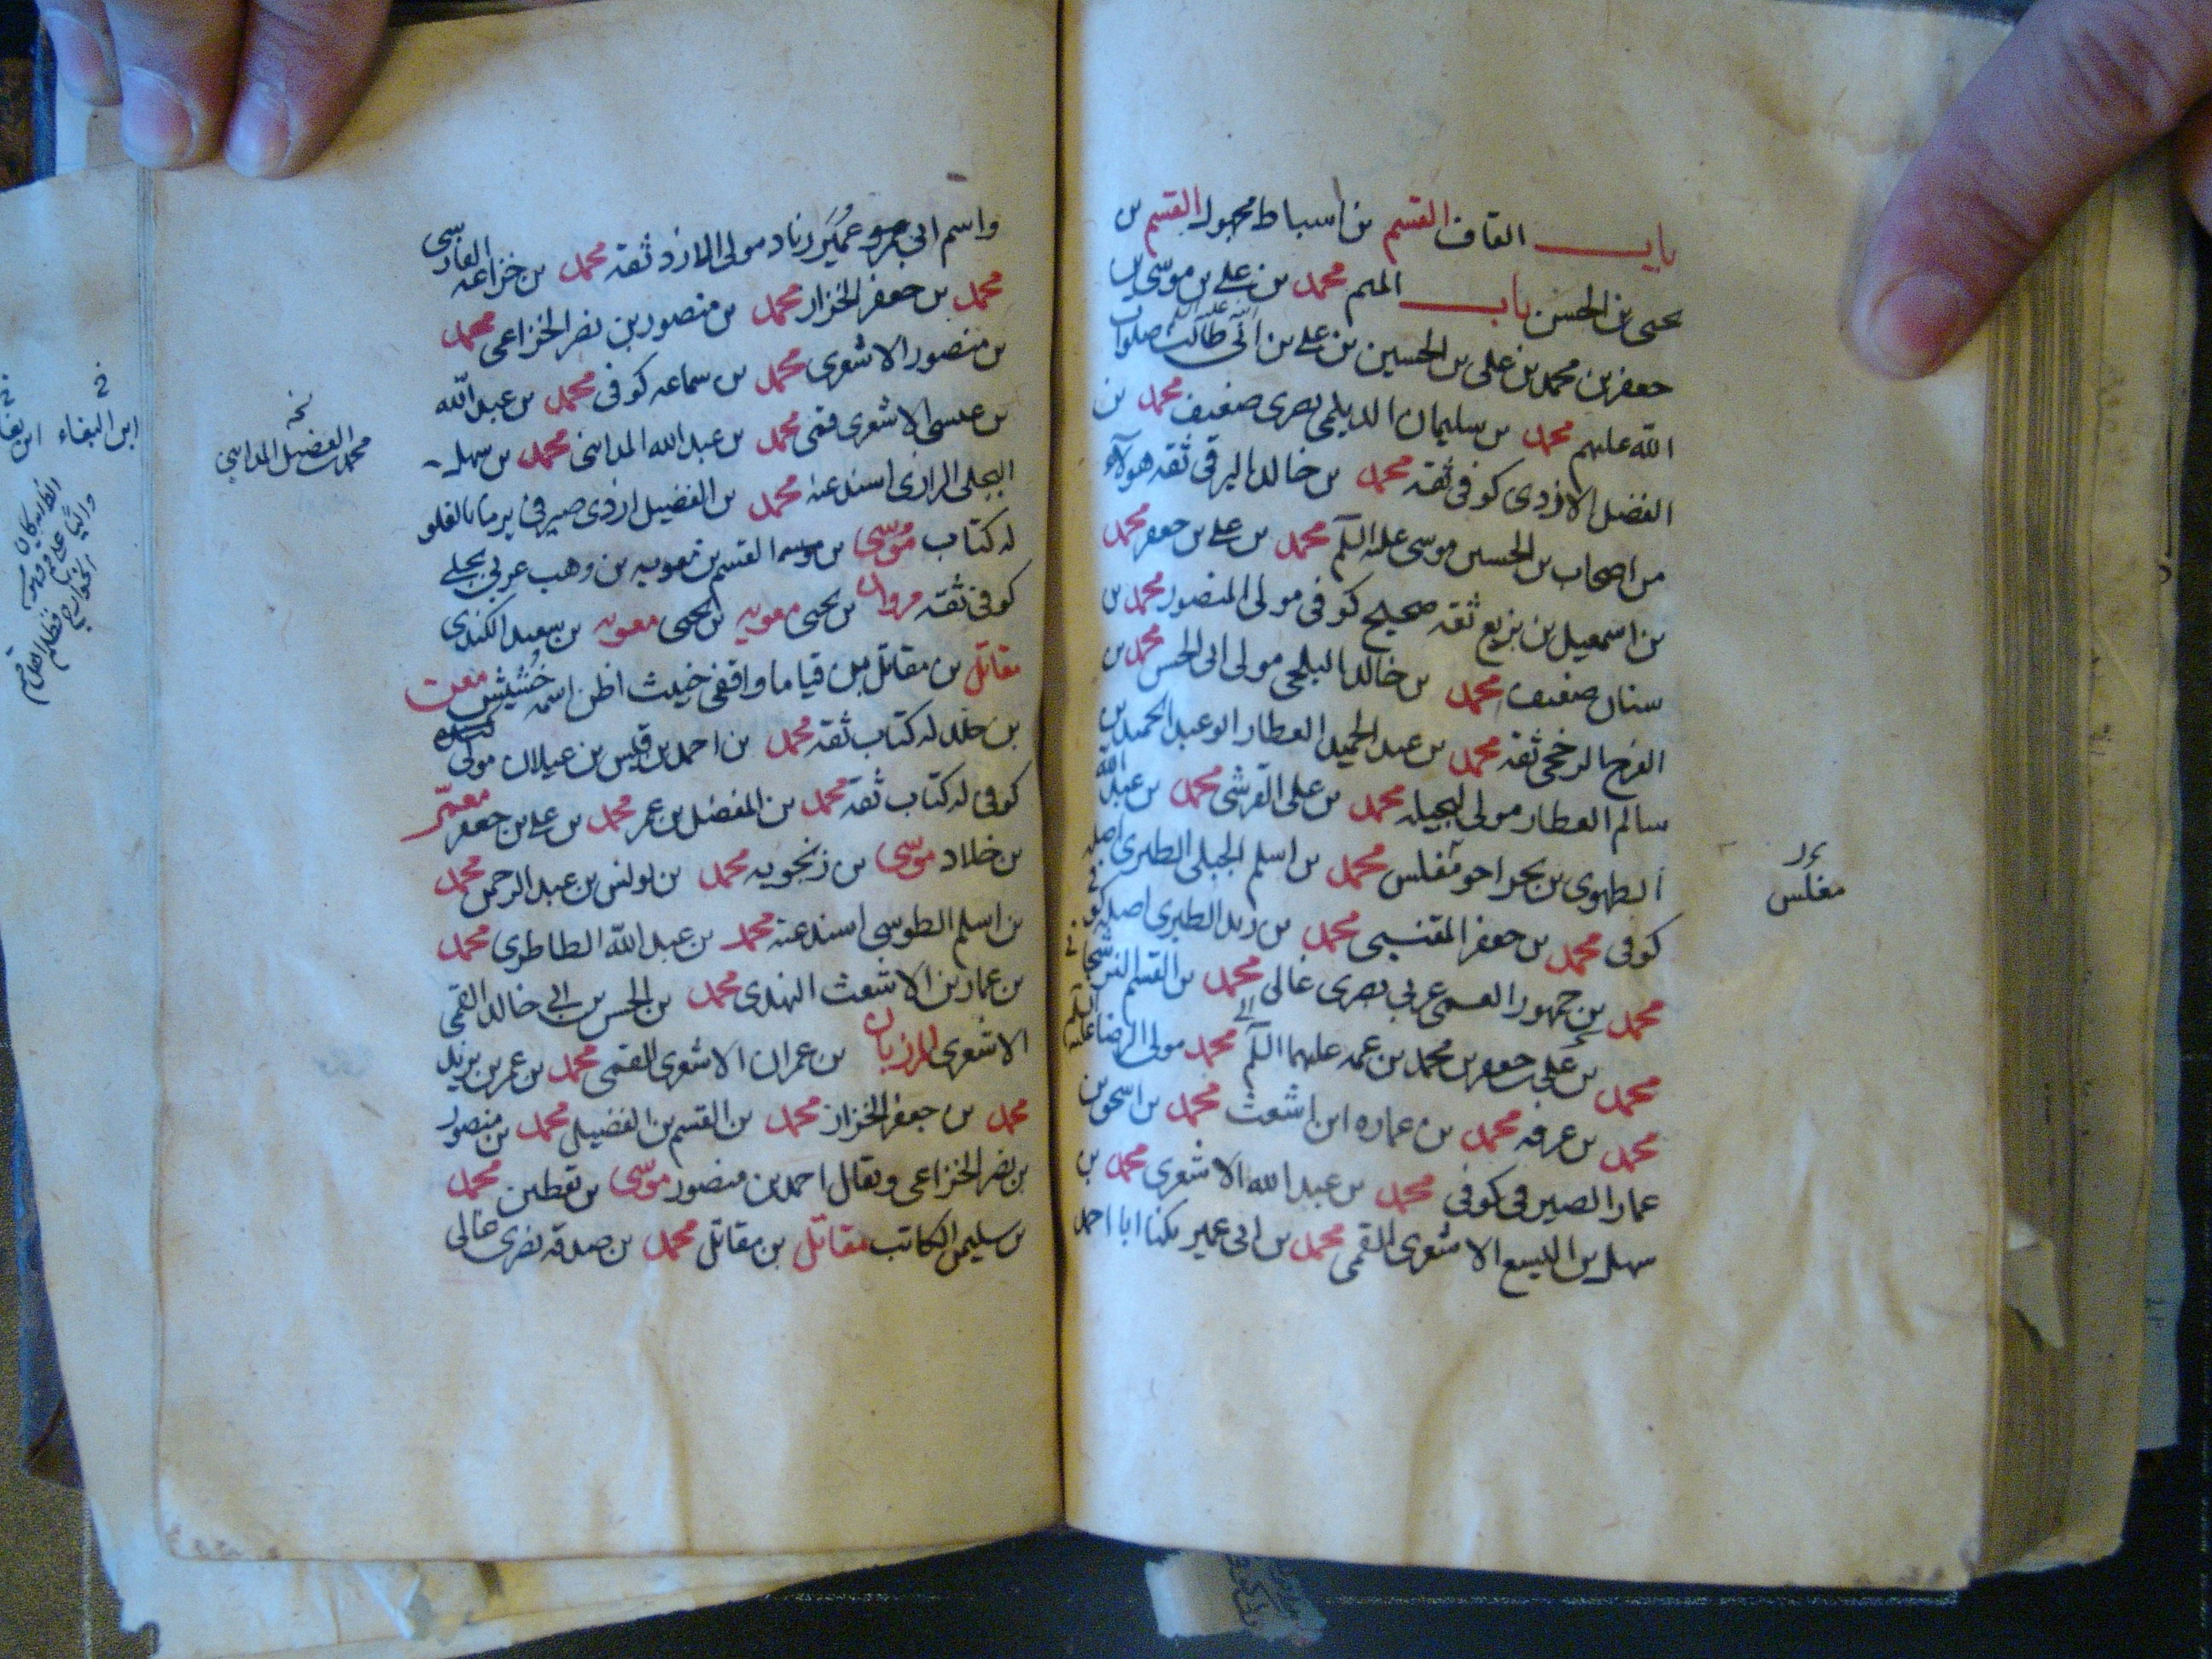 باب القاف القسم بن اسباط مجهول القسم بن
يحيى بن الحسن باب الميم محمد بن علي بن موسى بن
جعفر بن محمد بن على بن الحسين بن على بن ابى طالب صلوات
الله عليهم محمد بن سليمان الديلمي بصرى ضعيف محمد بن
الفضل الازدى كوفى ثقه محمد بن خالد البرقى ثقه هولآء
من اصحاب بن الحسين موسى عليه السلم محمد بن على بن جعفر محمد
بن اسمعيل بن بزيع ثقه صحيح كوفى مولى المنصور محمد بن
سنان ضعيف محمد بن خالد البلخى مولى ابى الحسن محمد بن
الفرج الرخجى ثقه محمد بن عبد الحميد العطار ابو عبد الحميد بن
سالم العطار مولى لبجيله محمد بن على القرشى محمد بن عبد الله
الطهوى بن بحر اخو مغلس محمد بن اسلم الجبلى الطبرى اصله
كوفى محمد بن جعفر محمد بن زيد الطبرى اصله كوفى
محمد بن جمهور العمى عربى بصرى غالى محمد بن القسم
محمد بن على بن جعفر بن محمد بن عمه عليهما السلم محمد مولى الرضا عليه السلم
محمد بن عرفه محمد بن عماره ابن اشعث محمد بن اسحق بن
عمار الصيرفى كوفى محمد بن عبد الله الاشعرى محمد بن
سهل بن اليسع الاشعرى القمى محمد بن ابى عمير يكنا ابا احمد
مغلس
واسم ابى عمير زياد مولى الازد ثقه محمد بن خزاعه الفارسى
محمد بن جعفر الخزاز محمد بن منصور بن نصر الخزاعى محمد
بن منصور الاشعرى محمد بن سماعه كوفى محمد بن عبد الله
بن عيسى الاشعرى قمى محمد بن عبد الله المداينى محمد بن سهل
البجلى الرازى اسند عنه محمد بن الفضيل ازدى صيرفى يرما بالغلو
له كتاب موسى بن القسم بن معويه بن وهب عربى بجلى
كوفى ثقه مروان بن يحيى معويه بن يحيى معويه بن سعيد الكندى
مقاتل بن مقاتل بن قياما واقفى خبيث اظن اسمه خشيش معمر
بن خلد له كتاب ثقه محمد بن احمد بن قيس بن عيلان مولى كنده
كوفى له كتاب ثقه محمد بن المفضل بن عمر محمد بن على بن جعفر معمر
بن خلاد موسى بن زنجويه محمد بن يونس بن عبد الرحمن محمد
بن اسلم الطوسى اسند عنه محمد بن عبد الله الطاطرى محمد
بن عمار بن الاشعث النهدى محمد بن الحسن بن ابى خالد القمى
الاشعرى المرزبان بن عمران الاشعرى القمى محمد بن عمر بن يزيد
محمد بن جعفر الخزاز محمد بن القسم بن الفضيل محمد بن منصور
بن نصر الخزاعى ويقال احمد بن منصور موسى بن يقطين محمد
بن سليمن الكاتب مقاتل بن مقاتل محمد بن صدقه بصرى غالى
محمد بن الفضيل المداينى
ابن البغاء